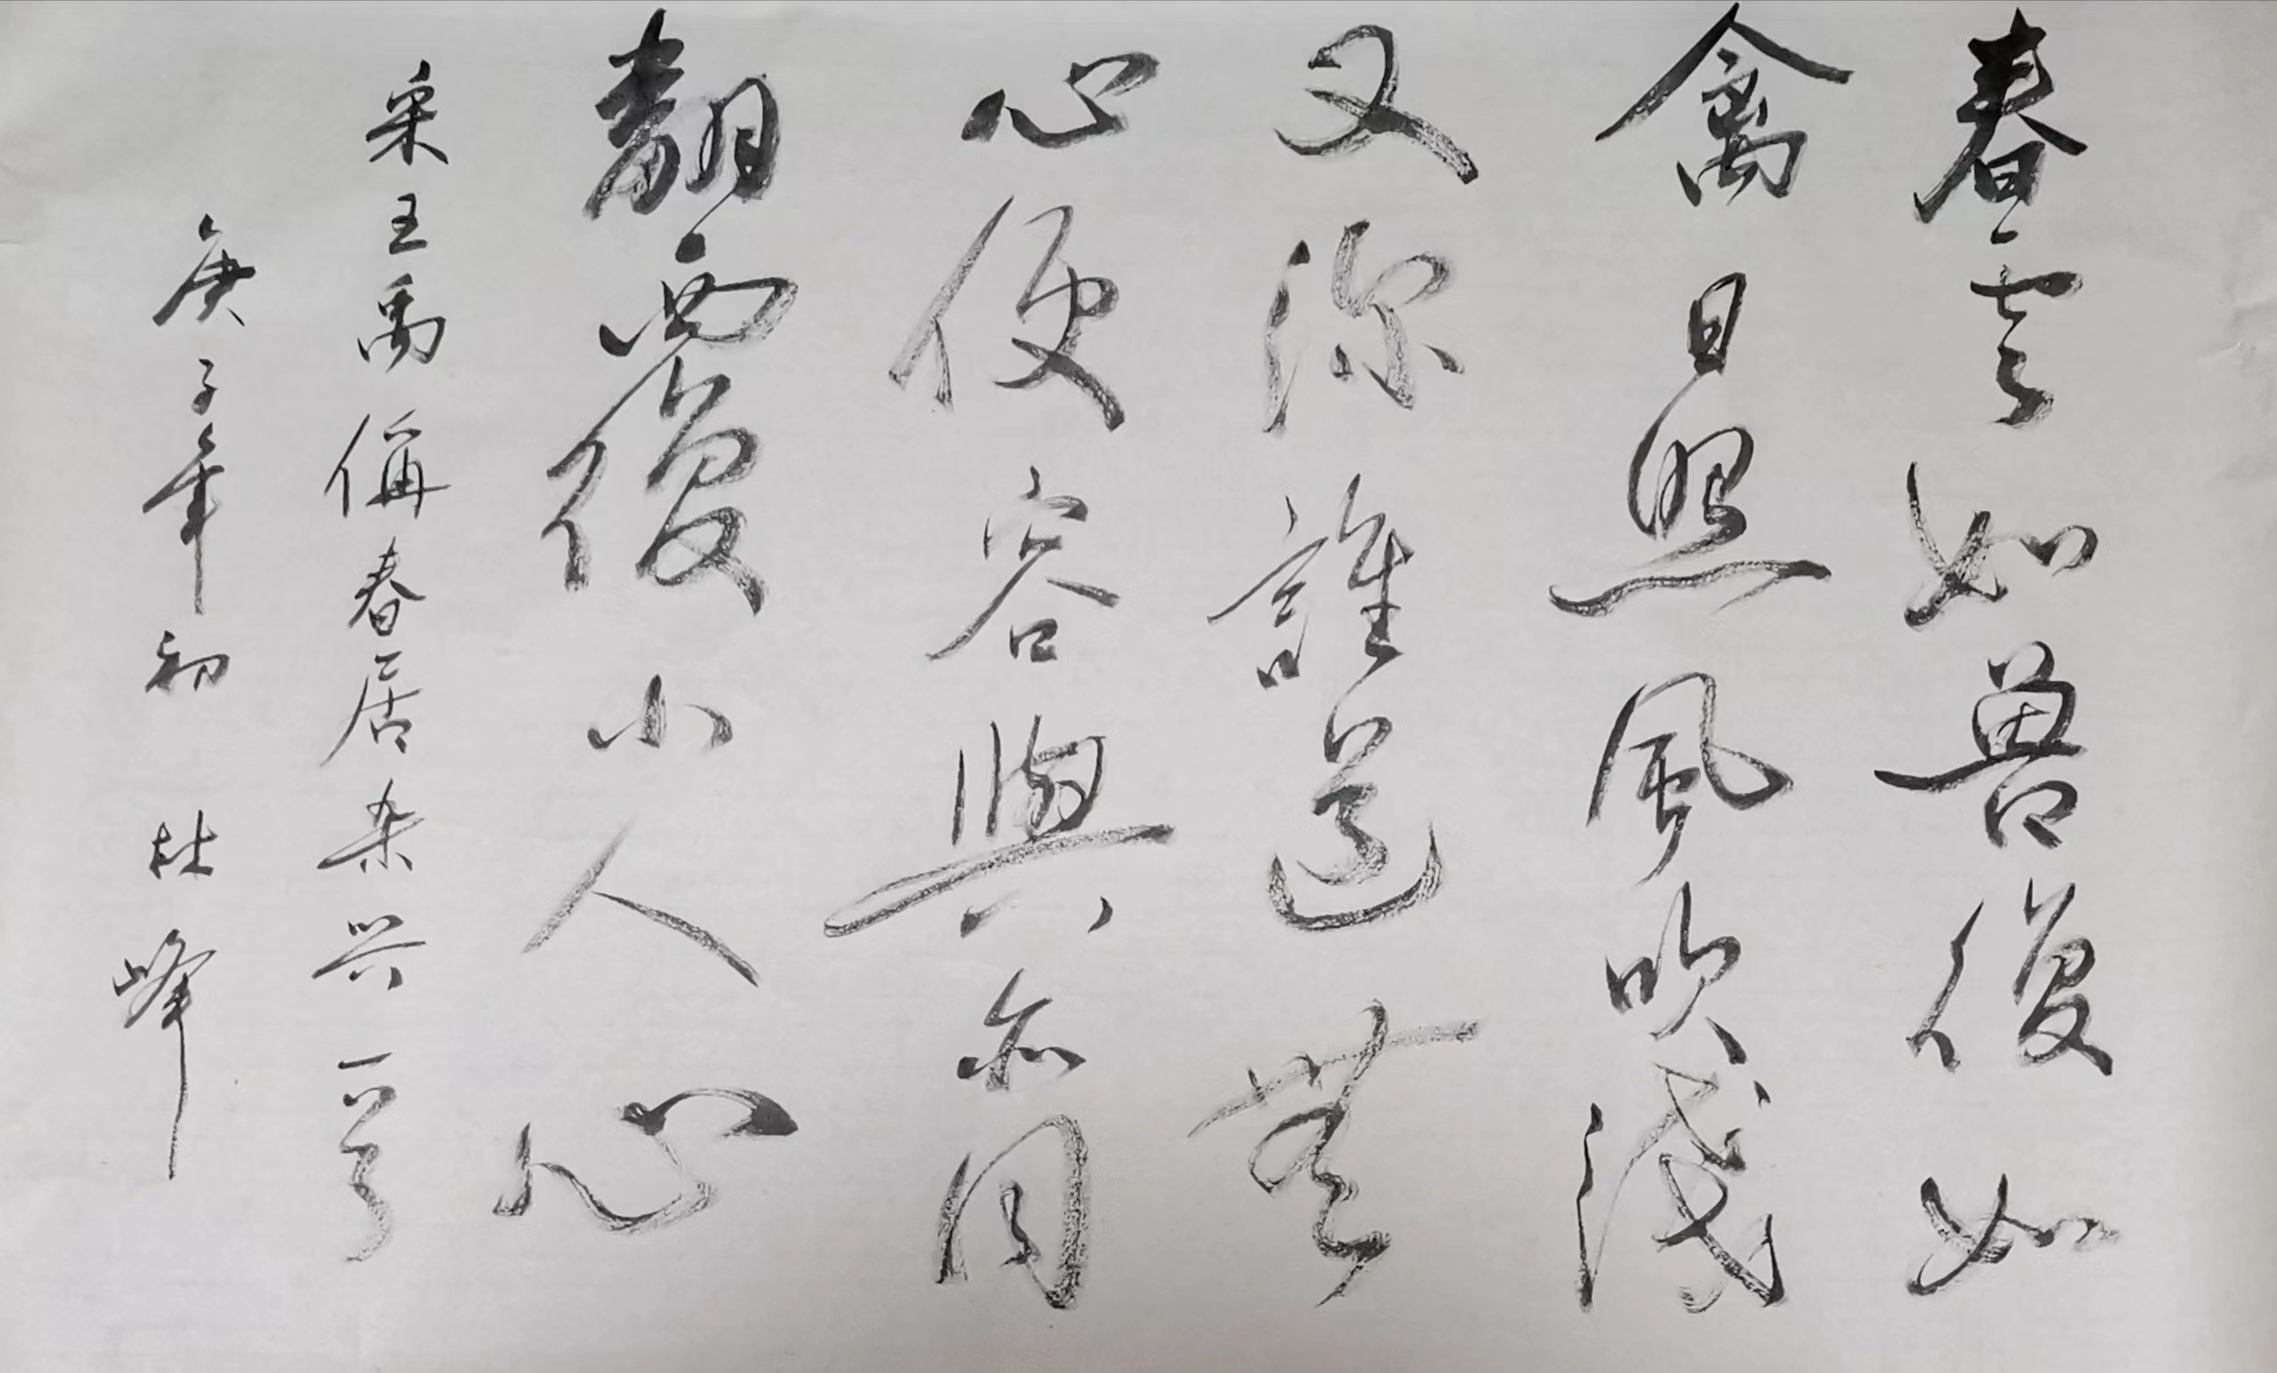 春雲如兽復如
禽日照風吹淺
又深誰道無
心便容與亦同
翻覆小人心
宋王禹偁春居杂兴一首
庚子年初 杜峰